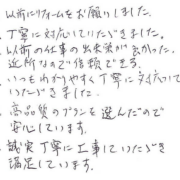 以前にリフォームをお願いしました。
丁寧に対応していただきました。
以前の仕事の出来栄が良かった。
近所なので信頼できる。
いつもわかりやすく丁寧に対応して
いただきました。
高品質のプランを選んだので
安心しています。
誠実丁寧に工事していただき
満足しています。